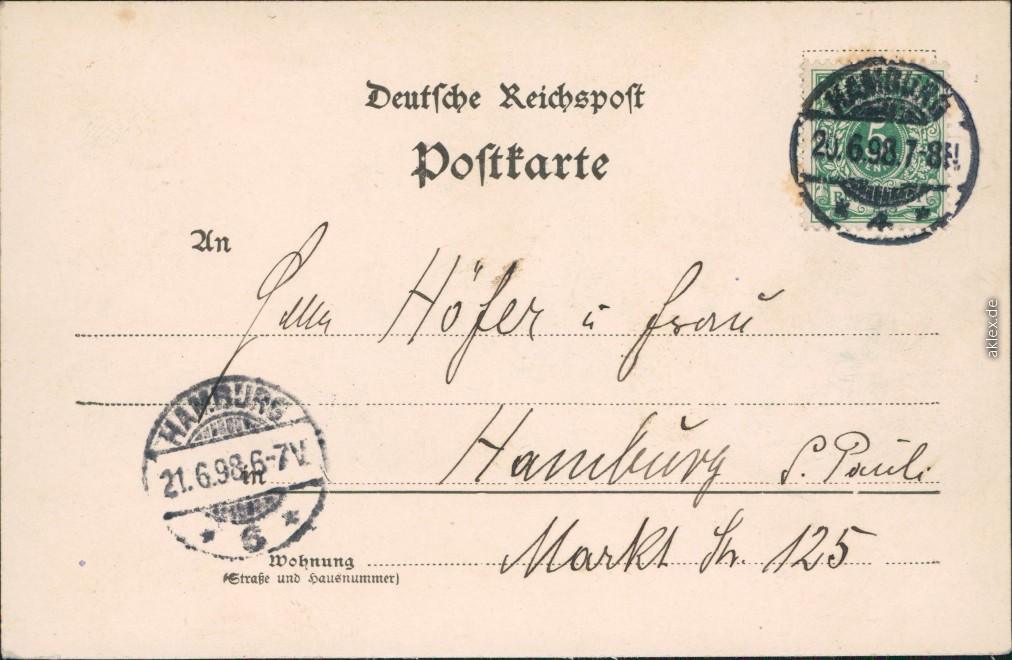 Deutsche Reichspost
Postkarte
HAMBURG
20.6.98.7-8N
* 4 *
5
An
Höfer u Frau
HAMBURG
21.6.98.6-7V.
* 6 *
in Hamburg S. Pauli
Wohnung Markt Str. 125
(Straße und Hausnummer)
aklex.de